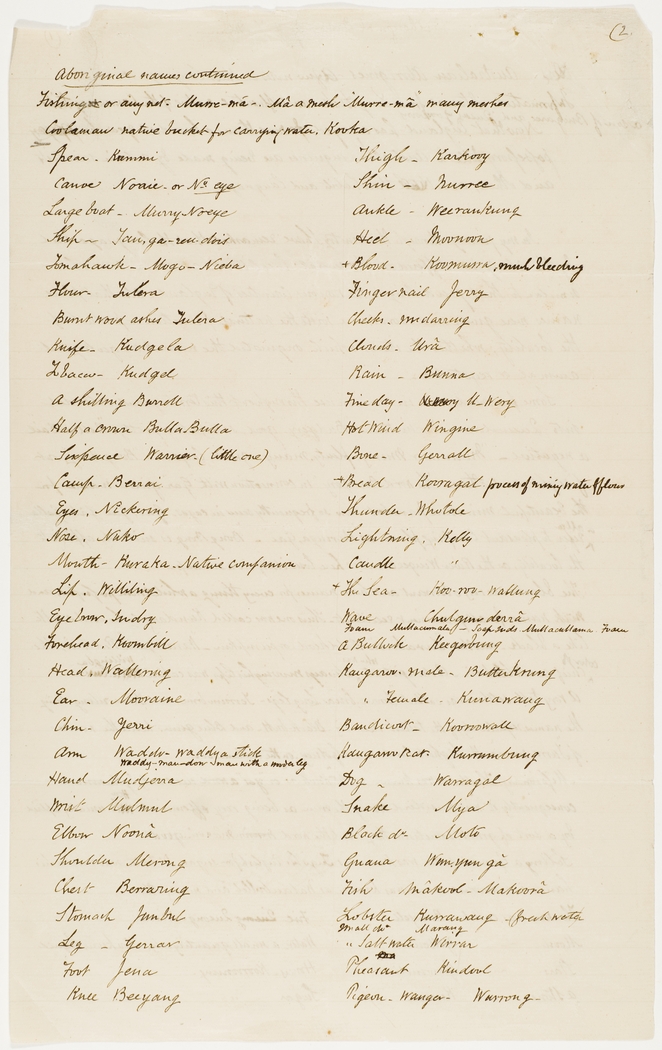 (2.
Aboriginal names continued
Fishing or any net - Murre-mā -. Mā a mesh Murre-mā many meshes
Coolaman native bucket for carrying water. Kooka
Spear - Kummi
Canoe Noaie - or No. eye
Large boat - Murry Noeye
Ship -
Tomahawk - Mogo - Nieba
Flour - Tulera
Burnt wood ashes Tulera
Knife - Kudgela
Tobacco - Kudgel
A shilling Burrell
Half a crown Bulla Bulla
Sixpence Warrier - (little one)
Camp - Berrai
Eyes. Nickering
Nose. Nuko
Mouth - Kuraka. Native companion
Lip. Williling
Eye brow. Indry
Forehead. Koombell
Head. Wallering
Ear - Mooraine
Chin - Yerri
Arm Waddow - waddy a stick
waddy-man-dow man with a wooden leg
Hand Mudjerra
Wrist Mulmul
Elbow Noonā
Shoulder Merong
Chest Berraring
Stomach Junbul
Leg - Yerrar
Foot Jena
Knee Beeyang
Thigh - Karkooy
Shin - Nurree
Ankle - Weerankung
Heel - Moonoon
+ Blood - Koomurra, much bleeding
Finger nail Jerry
Cheeks - mudarring
Clouds - Urā
Rain - Bunna
Fine day - U-Wery
Hot Wind Wingine
Bone - Gerrall
+ Bread Kooragal process of mixing water & flour
Thunder - Whotole
Lightning. Kelly
Candle "
+ The Sea - Koo-roo-wallung
Wave Chulgunderrā
Foam Mullacumate - Soap suds Mullacullama Foam
A Bullock Keegorbung
Kangaroo - male - Butterkrung
" Female - Kunawang
Bandicoot - Kooroowall
Kangaroo Rat. Kurrumbung
Dog - Warragal
Snake Mya
Black do Moto
Guana Wun,yun gā
Fish Mākool - Makoorā
Lobster Kurrawang (fresh water
Small do Marang
" Salt water Wirrar
Pheasant Kindool
Pigeon - Wanger - Warrong -